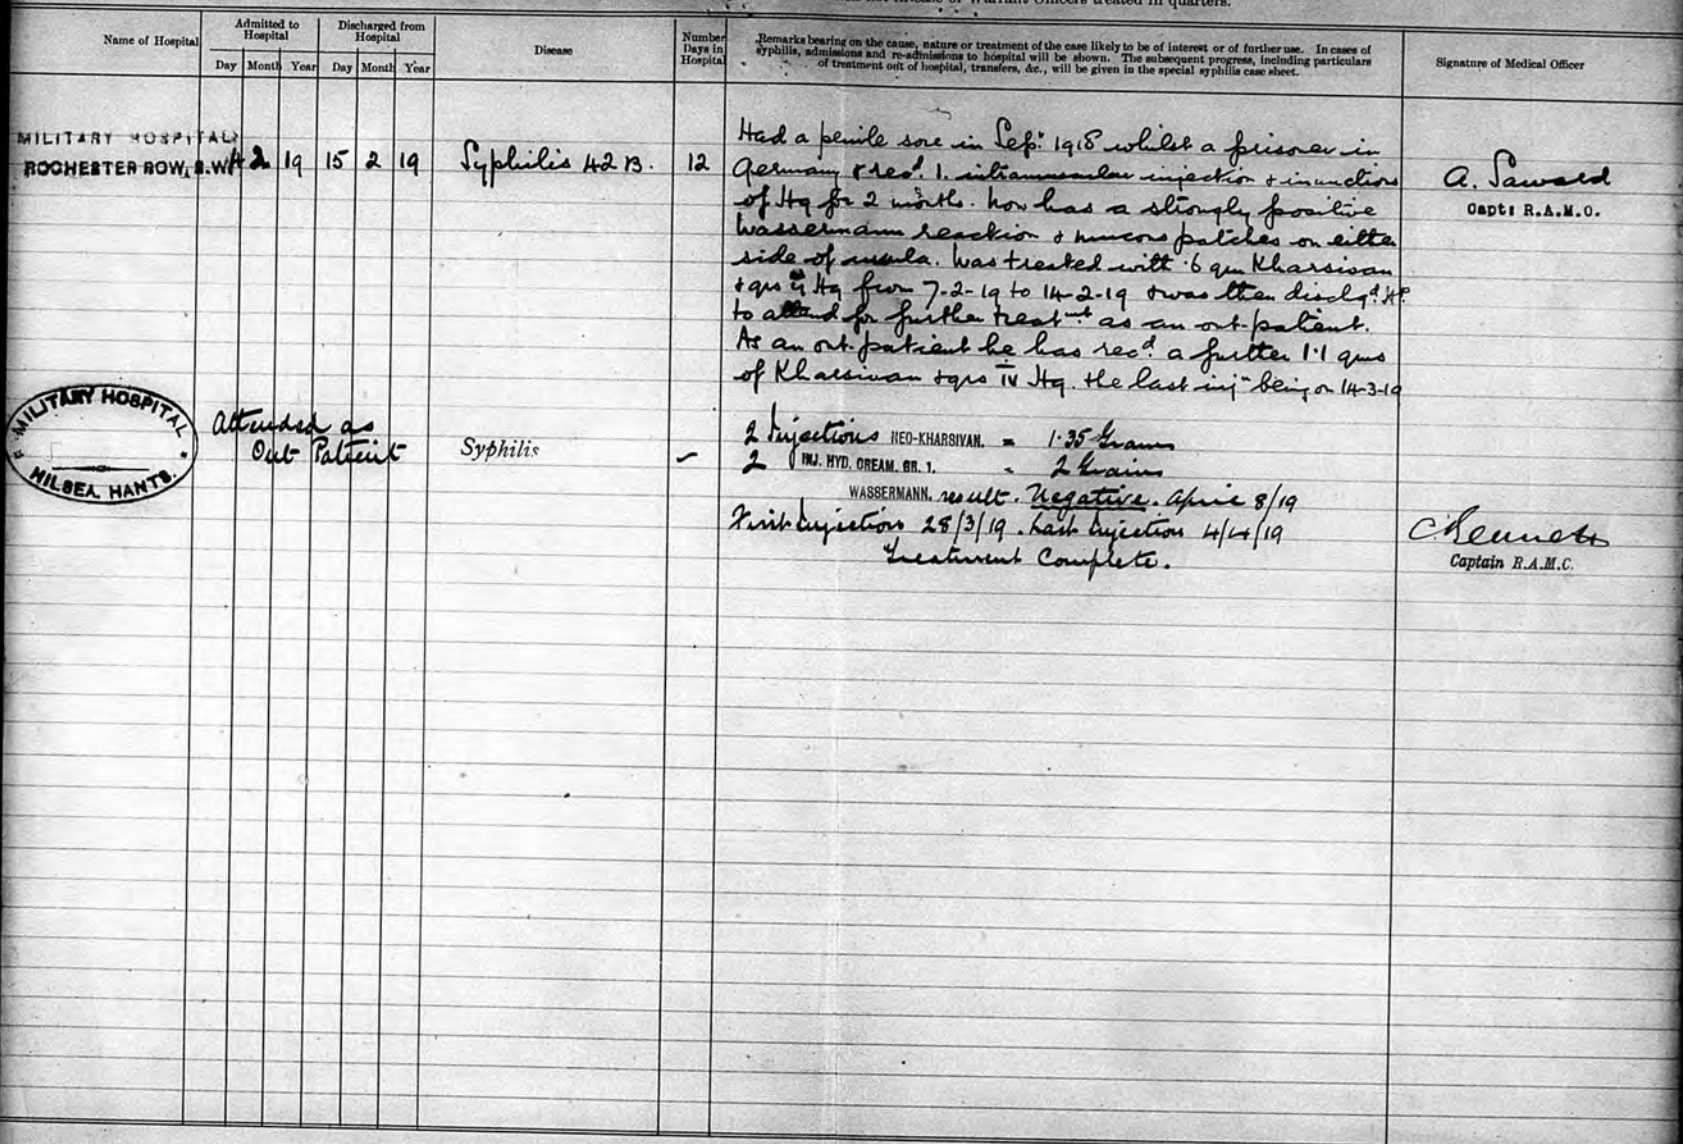 treated in quarters.
Name of Hospital
Admitted to Hospital
Discharged from Hospital
Day Month Year Day Month Year
Disease
Number Days in Hospital
Remarks bearing on the cause, nature or treatment of the case likely to be of interest or of further use. In cases of
syphilis, admissions and re-admissions to hospital will be shown. The subsequent progress, including particulars
of treatment out of hospital, transfers, &c., will be given in the special syphilis case sheet.
Signature of Medical Officer
MILITARY HOSPITAL
ROCHESTER ROW, S.W. 4 2 19 15 2 19 Syphilis 42 B. 12
Had a penile sore in Sep: 1918 whilst a prisoner in
Germany & recd. 1. intramuscular injection & inunctions
of Hg for 2 months. Now has a strongly positive
Wassermann reaction & mucous patches on either
side of uvula. Was treated with .6 gm Kharsivan
& grs Hg from 7-2-19 to 14-2-19 & was then dischgd.
to attend for further treatmt as an out-patient.
As an out-patient he has recd. a further 1.1 gms
of Kharsivan & grs IV Hg. the last inj. being on 14-3-19
A. Saward
Capt: R.A.M.C.
MILITARY HOSPITAL
HILSEA, HANTS.
Attended as
Out Patient
Syphilis
2 Injections NEO-KHARSIVAN. = 1.35 Grams
2 INJ. HYD. CREAM. GR. 1. 2 Grains
WASSERMANN. result. Negative. April 8/19
First Injection 28/3/19. Last Injection 4/4/19
Treatment Complete.
Captain R.A.M.C.